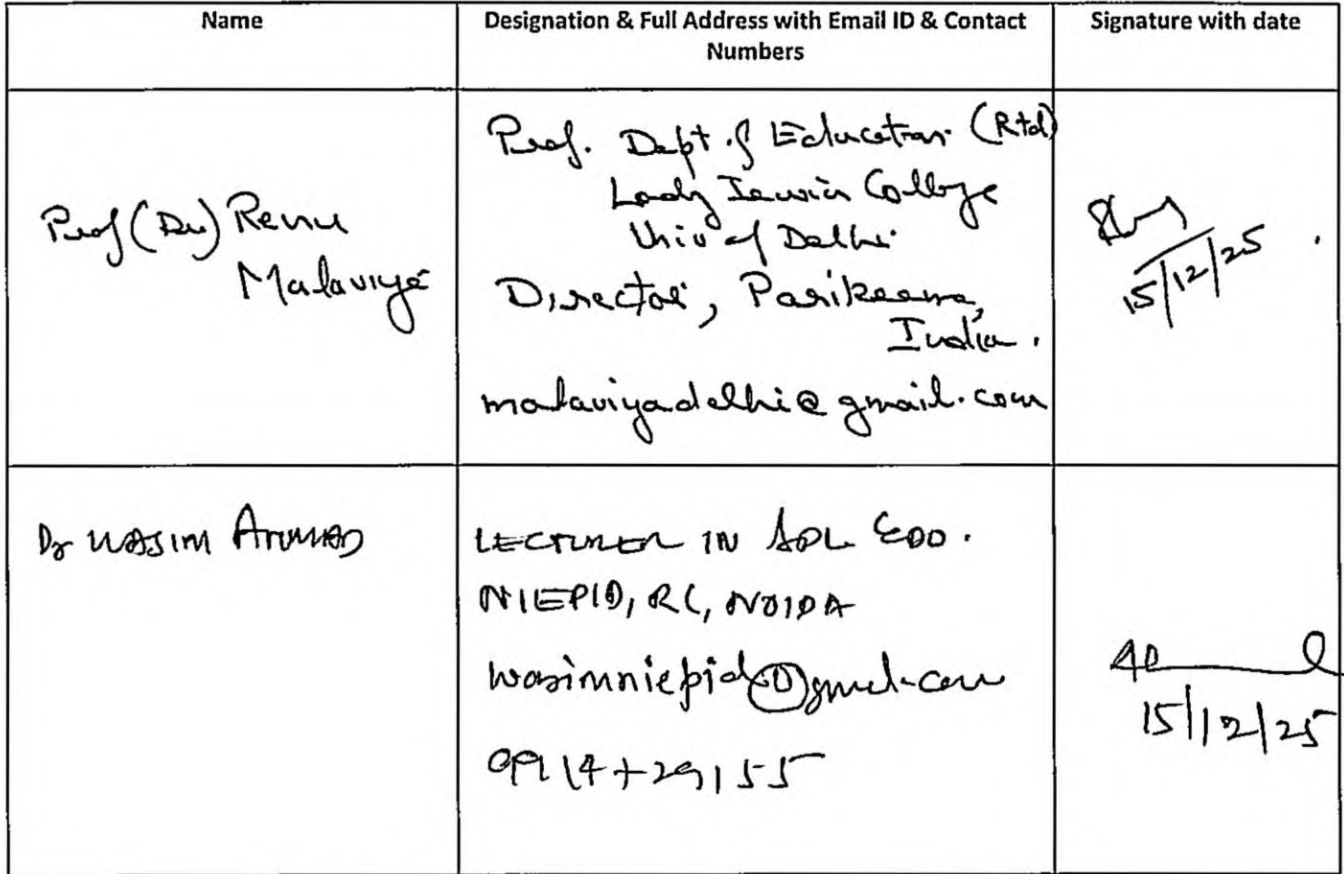 Name
Designation & Full Address with Email ID & Contact
Numbers
Signature with date
Prof (Dr) Renu
Malaviya
Prof. Dept. of Education (Rtd)
Lady Irwin College
Univ of Delhi
Director, Parikrama,
India.
malaviyadelhi@gmail.com
15/12/25
Dr WASIM AHMAD
LECTURER IN SPL EDD.
NIEPID, RC, NOIDA
wasimniepid@gmail.com
15/12/25